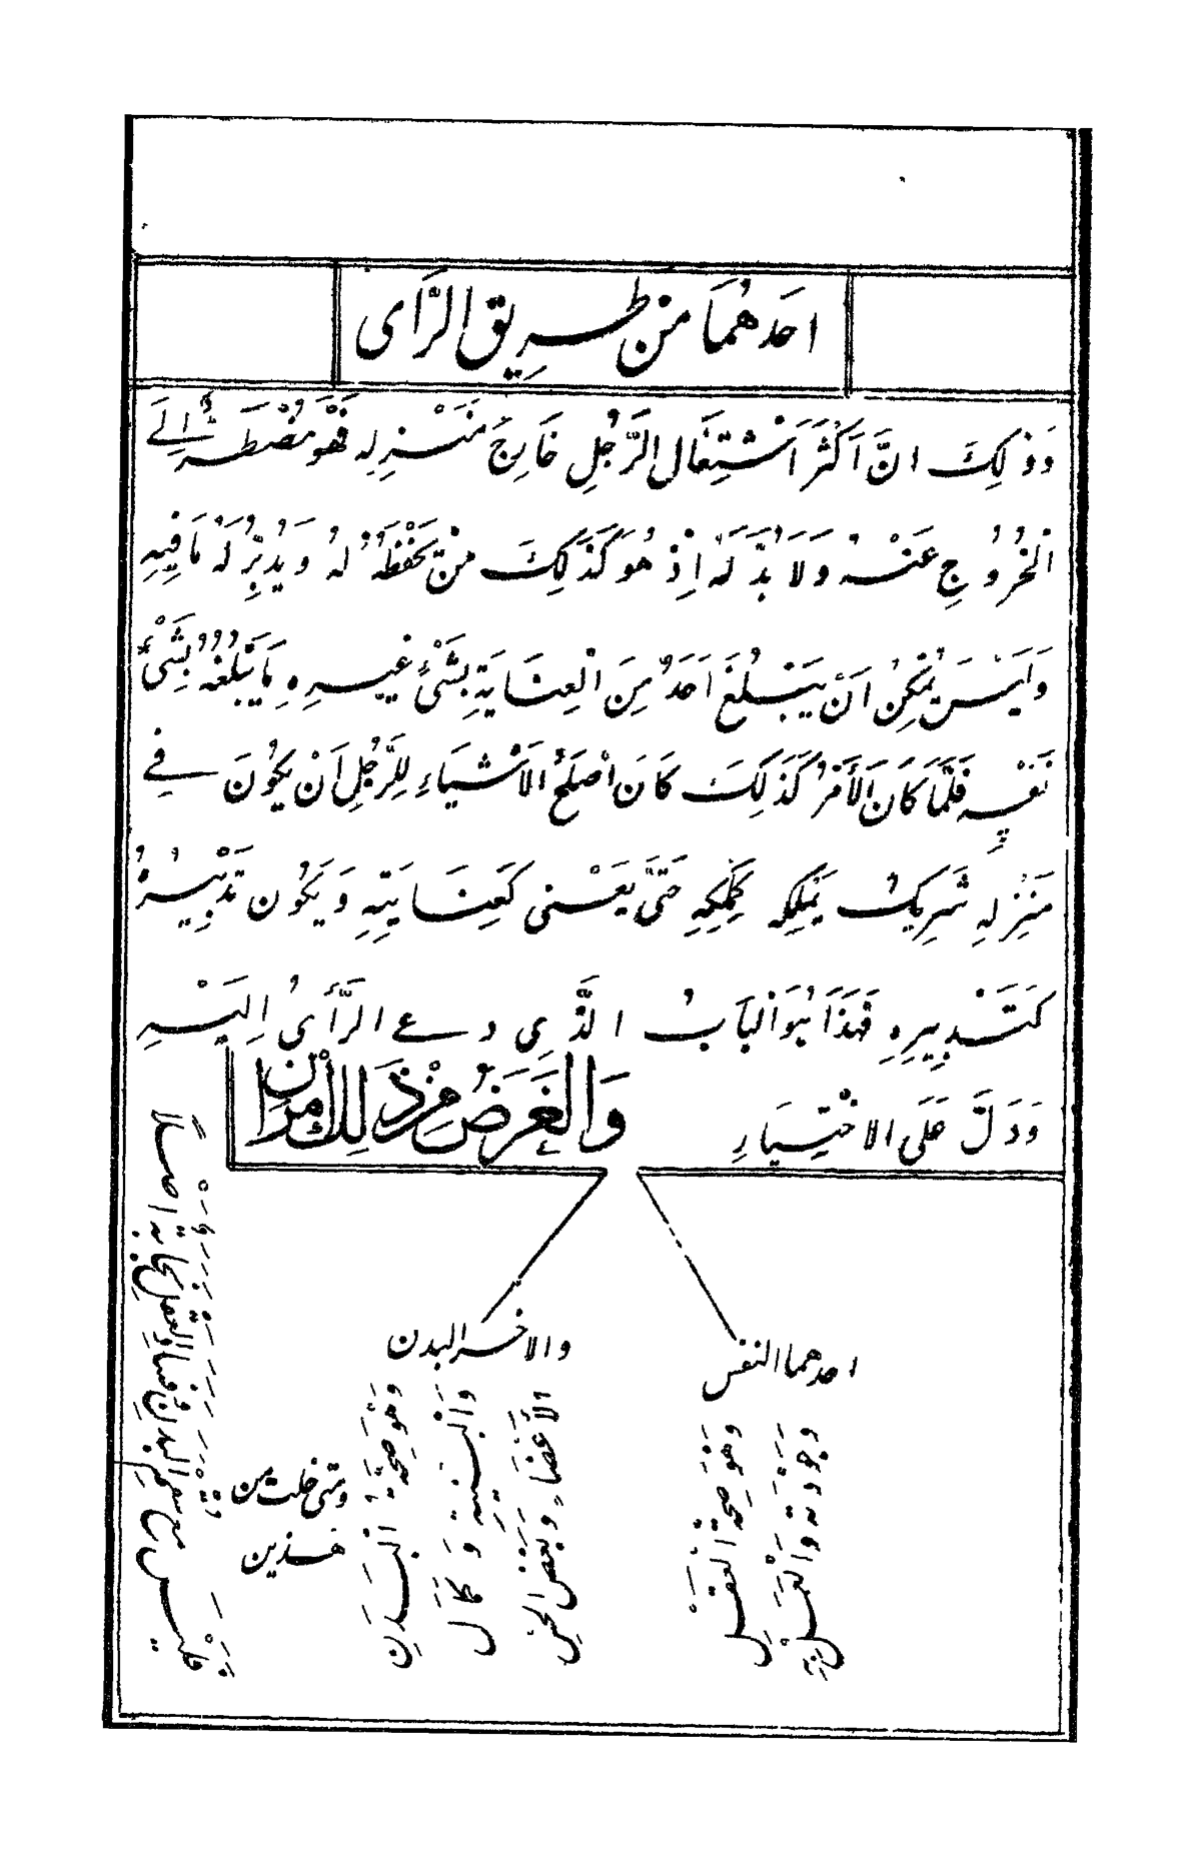 احَدهُمَا مِنْ طَرِيق الرَّاى
وَذٰلِكَ انَّ اَكْثَرَ اَشْتِغَال الرَّجُلِ خَارِجَ مَنْزِلِه فَهُوَ مُضْطَرٌّ اِلَے
الْخُرُوُجِ عَنْهُ وَلَا بُدَّ لَهُ اِذْ هُوَ كَذَلِكَ مَنْ يَحْفَظُهُ لَهُ وَيُدَبِّرُ لَهُ مَا فِيهِ
وَلَيْسَ يُمْكِنُ انْ يَبْلُغَ اَحَدٌ مِنَ الْعِنَايَةِ بِشَىْءٍ غَيرِهِ مَا يَبْلُغُهُ بِشَىْءِ
نَفْسِهِ فَلَمَّا كَانَ الْأَمْرُ كَذَلِكَ كَانَ اصْلَحُ الْاَشْيَاءِ لِلرَّجُلِ اَنْ يَكُونَ فِے
مَنْزِلِهِ شَرِيكٌ يَمْلِكُه كَمِلْكِهِ حَتَّى يَعْنى كَعِنَايَتِهِ وَيَكُون تَدْبِيرُهُ
كَتَدْبِيرِهِ فَهَذَا هُوَ الْبَابُ الَّذِى دعے الرَّأىُ اِلَيْهِ
وَدَلَّ عَلَى الاخْتِيَارِ وَالْغَرَضُ مِنْ ذَلِكَ أَمْرَان
احدهما النفس
وَهُوَ صِحَّةُ الْعَقْلِ
وَجَوْدَته وَالْعَمَل بِهِ
والاخر البدن
وَهُوَ صِحَّةُ الْبَدَنِ
وَالْبنيَةِ وَكمَال
الْأَعْضَاءِ وَبَعْض الحس
ومتى خلت من
هذين
فليس